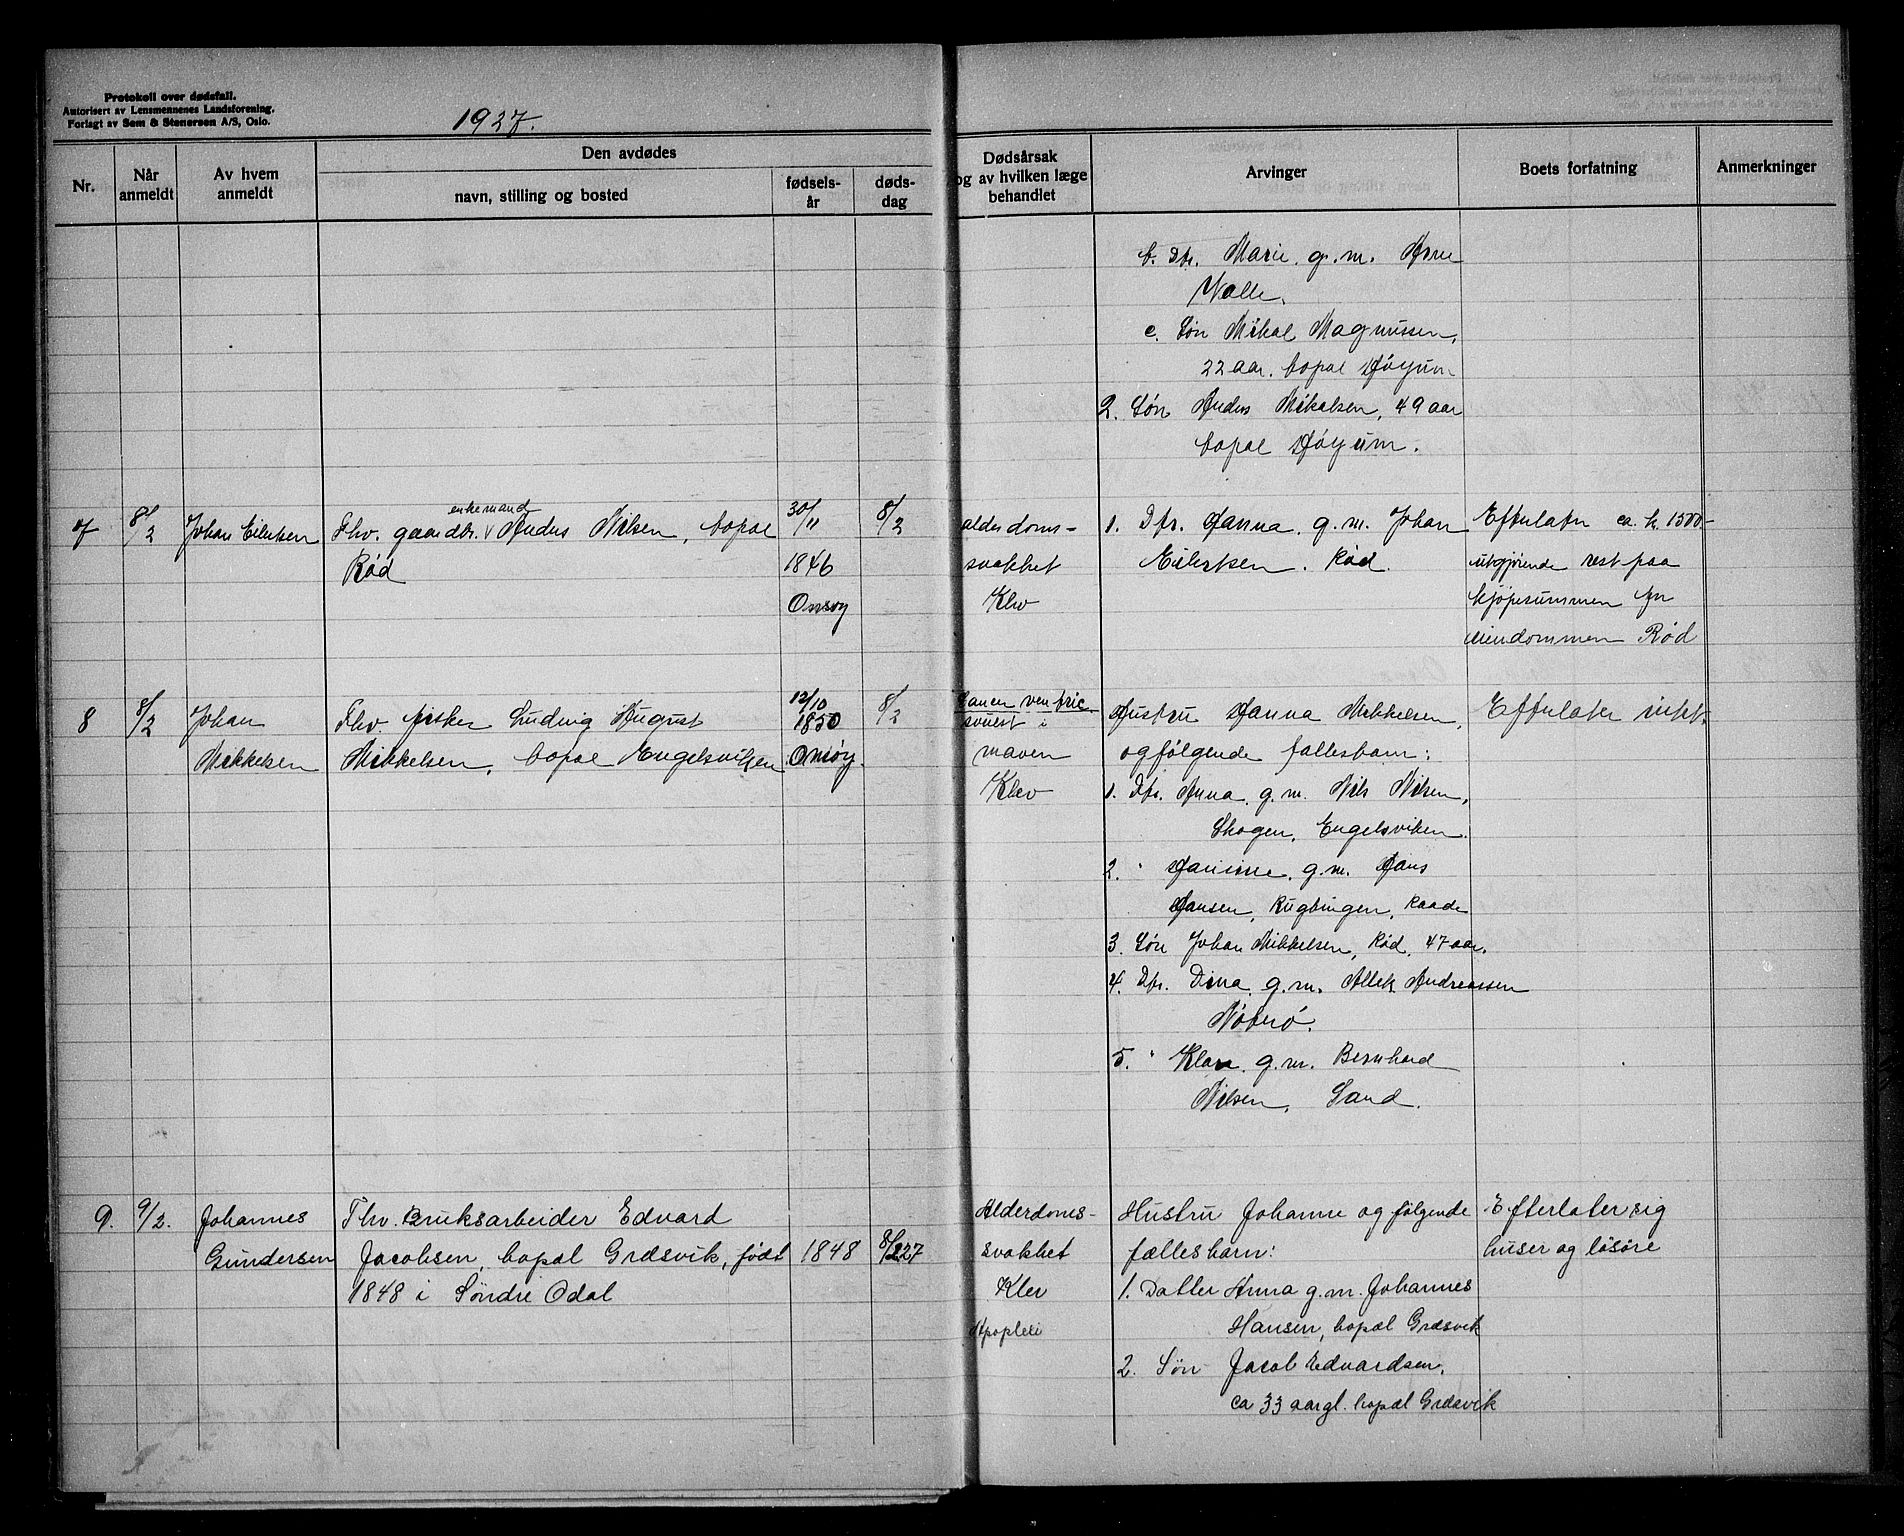 Protokoll over dødsfall.
Autorisert av Lensmennenes Landsforening.
Forlagt av Sem & Stenersen A/S, Oslo.
1927.
Nr.
Når anmeldt
Av hvem anmeldt
Den avdødes
navn, stilling og bosted
fødsels-
år
døds-
dag
Dødsårsak
og av hvilken læge
behandlet
Arvinger
Boets forfatning
Anmerkninger
b. Dtr. Marie g.m. Arne
Walle.
c. Søn Mikal Magnussen,
22 aar. bopæl Høyum
2. Søn Anders Mikalsen, 49 aar
bopæl Høyum.
7 8/2 Johan Eilertsen
enkemand
Fhv. gaardbr. V Anders Nilsen, bopæl
Rød
30/11
1846
Onsøy
8/2
alderdoms-
svakhet
Klev
1. Dtr. Hanna g.m. Johan
Eilertsen. Rød.
Efterlater ca. k. 1500-
utgjørende rest paa
kjøpesummen for
eiendommen Rød
8 8/2 Johan
Mikkelsen
Fhv. fisker Ludvig August
Mikkelsen, bopæl Engelsviken
12/10
1850
Onsøy.
8/2
Cancer ventric
svulst i
maven
Klev
Hustru Hanna Mikkelsen,
og følgende fællesbarn:
1. Dtr. Anna g.m. Nils Nilsen,
Skogen, Engelsviken.
2. " Hanine g.m. Hans
Hansen, Rugbingen, Raade
3. Søn Johan Mikkelsen, Rød, 47 aar.
4. Dtr. Dina g.m. Allek Andreassen
Nøterø.
5. " Klara g.m. Bernhard
Nilsen, Sand.
Efterlater intet.
9. 9/2. Johannes
Gundersen
Fhv. Bruksarbeider Edvard
Jacobsen, bopæl Græsvik, født
1848 i Søndre Odal
1848
8/2 27
Alderdoms-
svakhet
Klev
Apopleksi
Hustru Johanne og følgende
fællesbarn:
1. Datter Anna g.m. Johannes
Hansen, bopæl Græsvik
2. Søn Jacob Edvardsen,
ca 33 aar gl. bopæl Græsvik
Efterlater sig
huser og løsøre